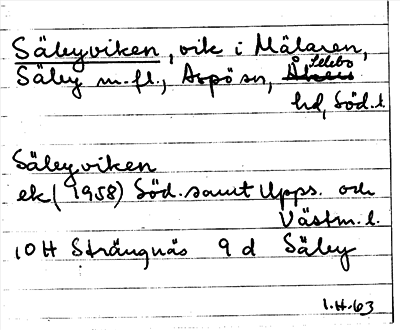 Säbyviken, vik i Mälaren,
Säby m.fl., Aspö sn, Åkers Selebo
hd, Söd.l.
Säbyviken
ek (1958) Söd. samt Upps. och
Västm.l.
10H Strängnäs 9d Säby
1.H.63